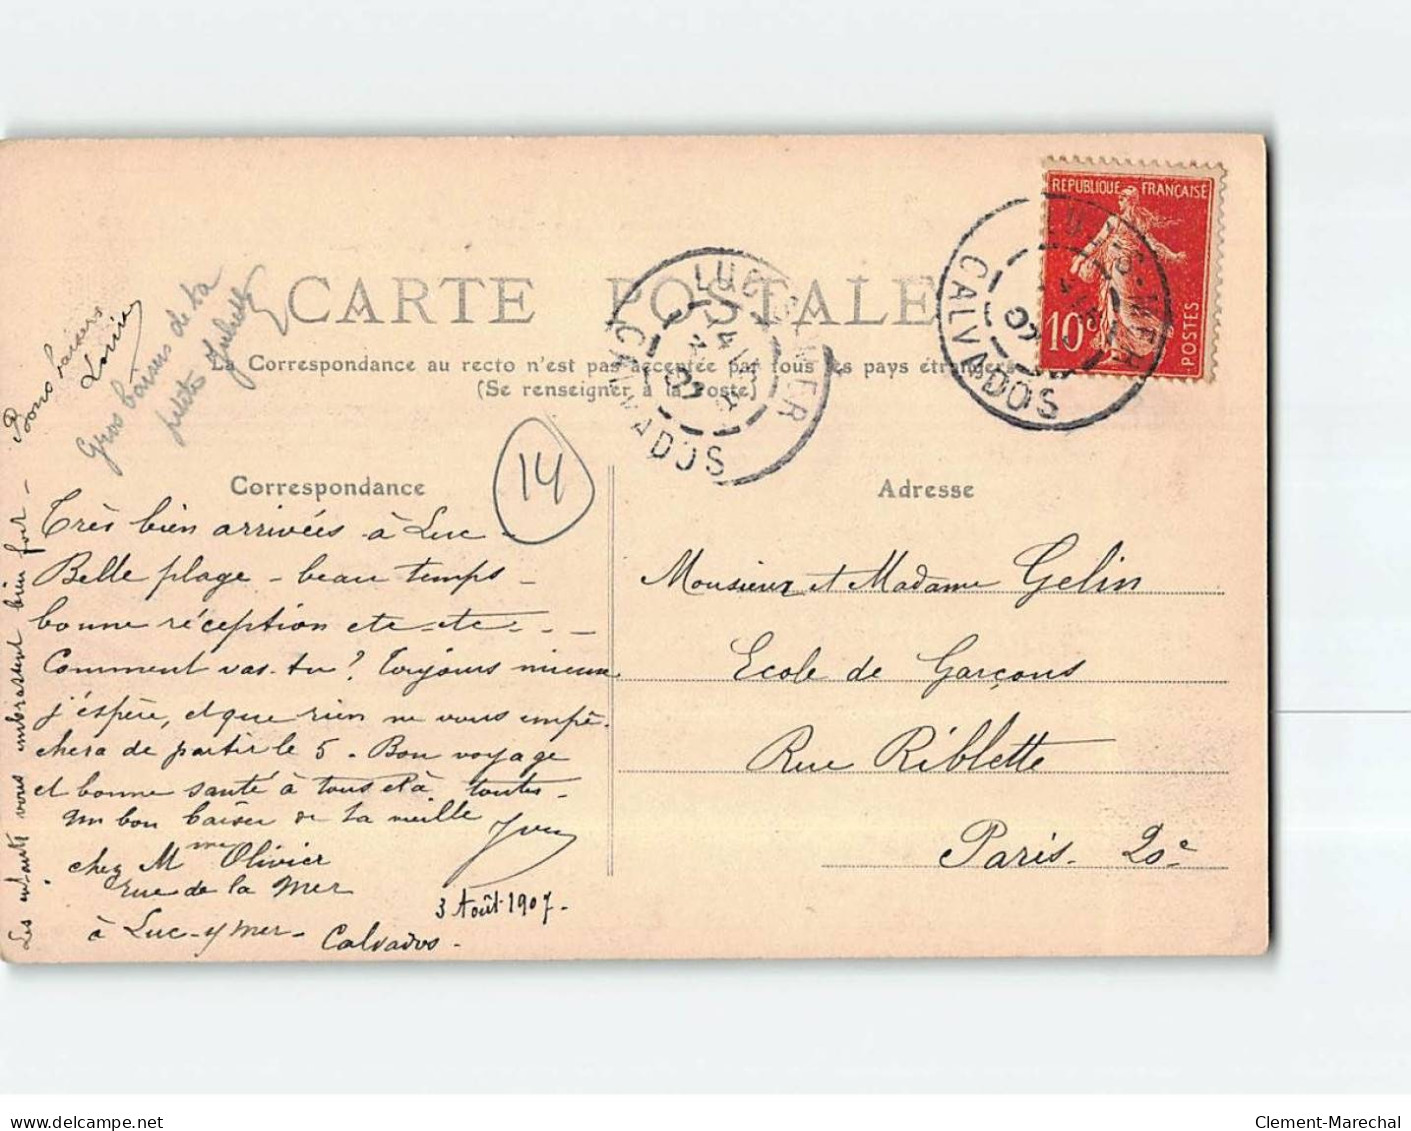 CARTE POSTALE
La Correspondance au recto n'est pas acceptée par tous les pays étrangers
(Se renseigner à la Poste)
REPUBLIQUE FRANÇAISE
10c
POSTES
LUC-S-MER
CALVADOS
LUC-S-MER
CALVADOS
07
Bons baisers
Louise
Gros baisers de ta
petite
14
Correspondance
Très bien arrivées à Luc -
Belle plage - beau temps -
bonne réception etc - etc - - -
Comment vas-tu ? Toujours mieux
j'espère, et que rien ne vous empê-
chera de partir le 5 - Bon voyage
et bonne santé à tous et à toutes -
Un bon baiser de ta vieille
chez Mme Olivier
rue de la Mer
à Luc-s/mer -
Calvados -
3 Août 1907 -
Les enfants vous embrassent bien fort -
Adresse
Monsieur et Madame Gelin
Ecole de Garçons
Rue Riblette
Paris - 20e
delcampe.net
Clement-Marechal